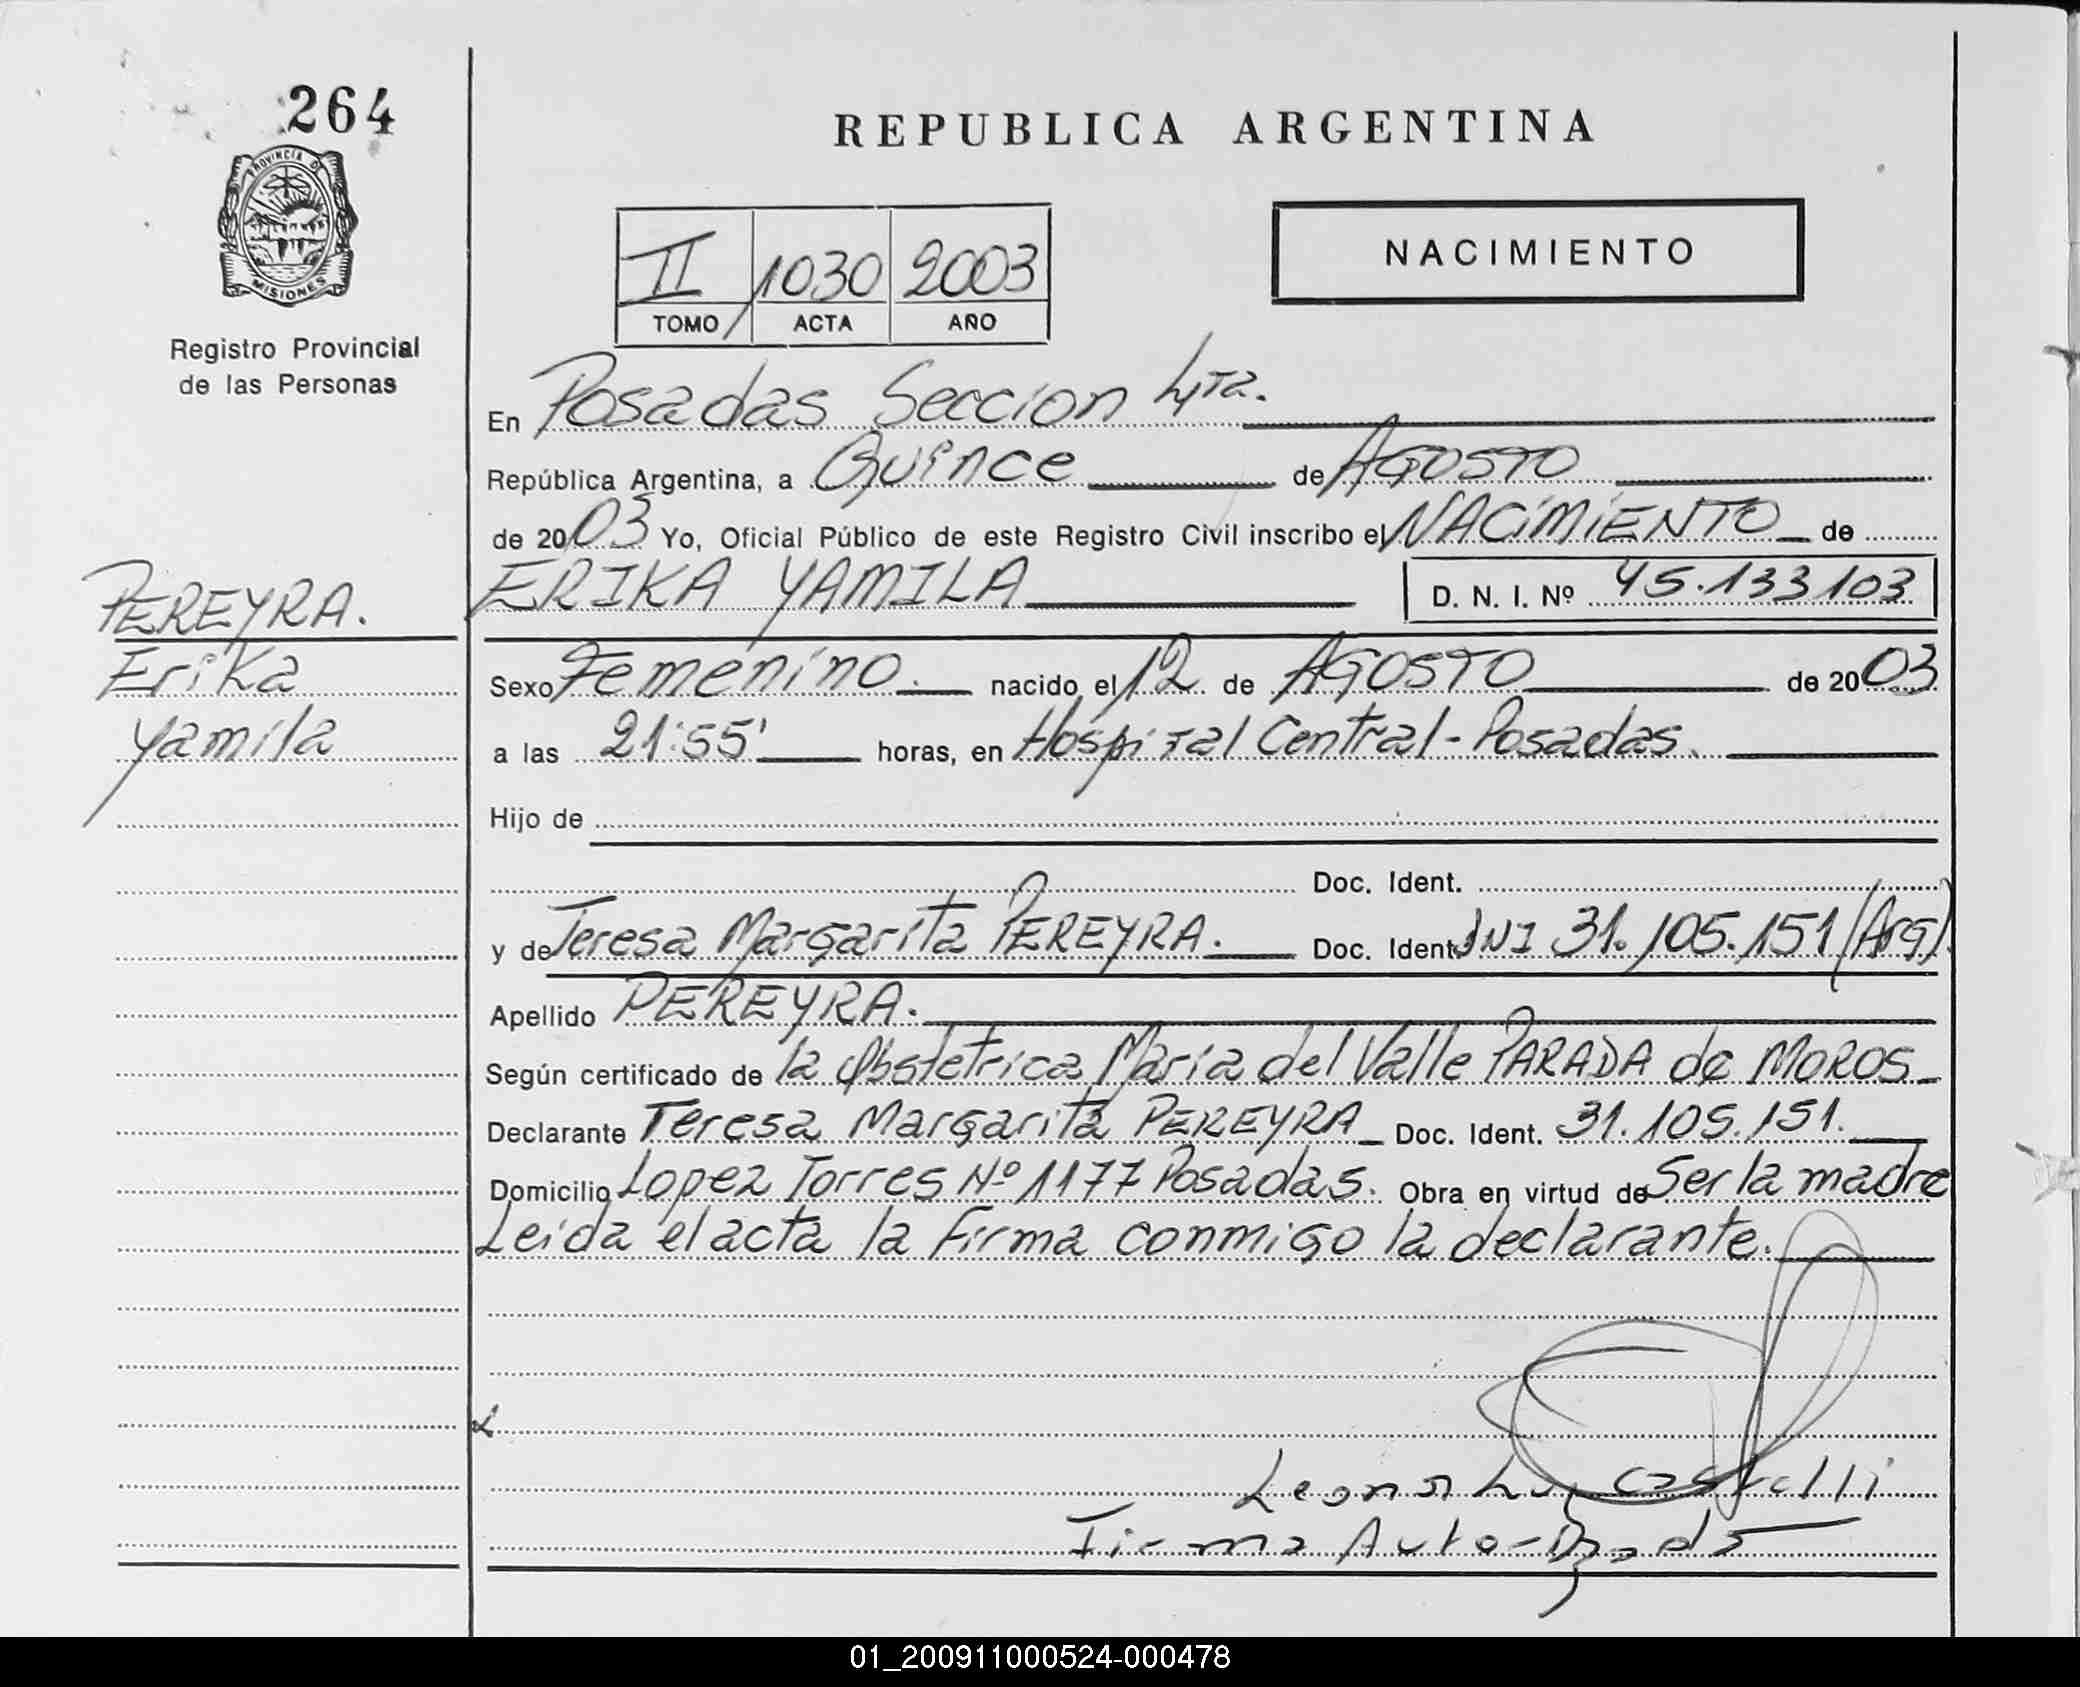 264
PROVINCIA DE
MISIONES
Registro Provincial
de las Personas
REPUBLICA ARGENTINA
II 1030 2003
TOMO ACTA AÑO
NACIMIENTO
En Posadas Seccion 4ta.
República Argentina, a Quince de AGOSTO
de 2003 Yo, Oficial Público de este Registro Civil inscribo el NACIMIENTO de
ERIKA YAMILA D. N. I. Nº 45.133103
PEREYRA.
Erika
Yamila
Sexo Femenino. nacido el 12 de AGOSTO de 2003
a las 21:55' horas, en Hospital Central - Posadas.
Hijo de
Doc. Ident.
y de Teresa Margarita PEREYRA. Doc. Ident. DNI 31.105.151 (Arg).
Apellido PEREYRA.
Según certificado de la Obstetrica Maria del Valle PARADA de MOROS
Declarante Teresa Margarita PEREYRA Doc. Ident. 31.105.151.
Domicilio Lopez Torres Nº 1177 Posadas. Obra en virtud de Ser la madre
Leida el acta la firma conmigo la declarante.
Castelli
Firma Autorizada
01_200911000524-000478